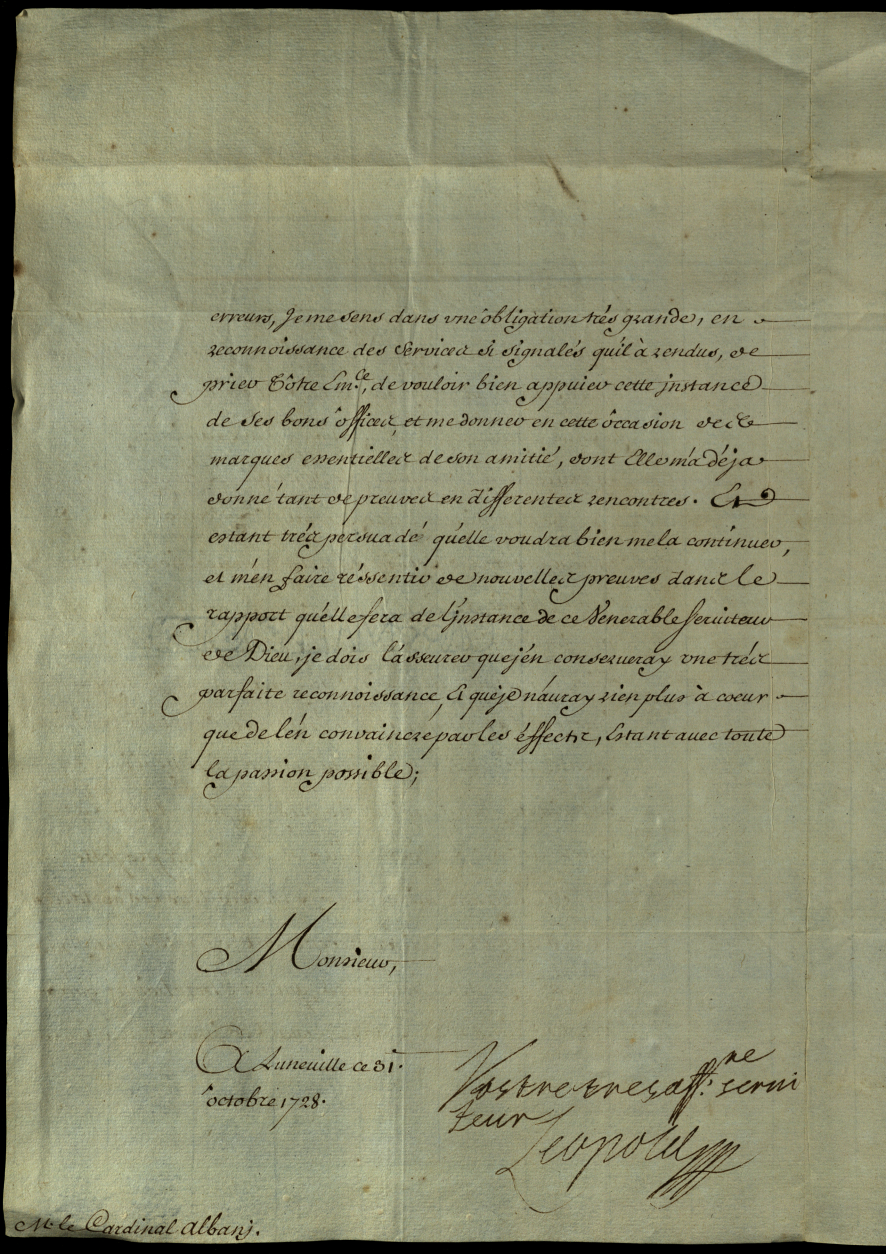 erreurs, Je me sens dans vne obligation trés grande, en
reconnoissance des Services si signalés qu'il à rendus, de
prier Vôtre Em.ce, de vouloir bien appuier cette jnstance
de Ses bons offices, et me donner en cette occasion de ces
marques essentielles de son amitié, dont Elle m'a déja
donné tant de preuves en differentes rencontres. Et
estant trés persuadé qu'elle voudra bien me la continuer,
et m'en faire réssentir de nouvelles preuves dans le
rapport qu'elle fera de l'Jnstance de ce Venerable Seruiteur
de Dieu, je dois l'ásseurer que j'én conserueray vne trés
parfaite reconnoissance, Et que je n'auray rien plus à coeur
que de l'én convaincre par les éffects, Estant avec toute
la passion possible;
Monsieur,
A Luneuille ce 31.
octobre 1728.
Vostre tres aff.ne serui
teur
Leopold
M. le Cardinal Albanj.